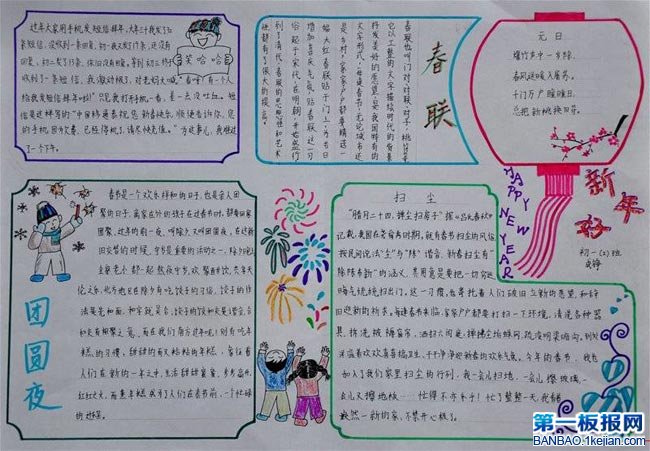 过年大家用手机发短信拜年,大年三十我发了几
条短信,没收到一条回复,初一我又数了门条,还没有
回复,初二发了几条,依旧没有回复,等到初三终于
收到一条短信,我激动极了,
给我发短信拜年啦!"只见我打开手机一看,差一点没吐血。短
信是这样写的"中国移通系统您新春快乐,顺便告诉你,您
的手机因为欠费,已经停机了,请尽快充值。"为这事儿,我郁过
了一个下午。
笑哈哈
春联
春联也叫门对、对联、对子、桃符等,
它以工整的
文字描绘时代的背景
抒发美好的愿望,是我国特有的
文学形式,每逢春节,无论城市还
是乡村,家家户户都要精选一
幅大红春联贴于门上,为节日
增加喜庆气氛,贴春联这一习
俗起于宋代,在明朝开始盛行
到了清代,春联的思想性和艺术
性都有了很大的提高。
元日
爆竹声中一岁除,
春风送暖入屠苏。
千门万户曈曈日,
总把新桃换旧符。
HAPPY
NEW YEAR
新年好
初一(2)班
团圆夜
春节是一个欢乐祥和的日子,也是亲人团
聚的日子,离家在外的孩子在过春节时,都要回家
团聚,过年的前一夜,叫除夕又叫团圆夜,在这新
旧交替的时候,守岁是重要的活动之一,除夕晚上
全家老小都一起熬夜守岁,欢聚酣饮,共享天
伦之乐,北方地区在除夕有吃饺子的习俗,饺子的作
法是先和面,和字就是合,饺子的饺和交是谐音,合
和交有相聚之意,而在我们南方过年呢!则有吃年
糕的习惯,甜甜的而又粘粘的年糕,象征着
人们在新的一年之中,生活甜甜蜜蜜,步步高升,
扫尘
"腊月二十四,掸尘扫房子"据《吕氏春秋》
记载,我国在尧舜时期,就有春节扫尘的风俗
按民间说法"尘"与"陈"谐音,新春扫尘有"
除陈布新"的涵义,其用意是要把一切穷运
晦气统统扫出门,这一习惯,也寄托着人们破旧立新的愿望,和辞
旧迎新的祈求,每逢春节来临,家家户户都要打扫一下环境,清洗各种器
具,拆洗被褥窗帘,洒扫六闾庭,掸拂尘垢蛛网,疏浚明渠暗沟,到处
洋溢着欢欢喜喜搞卫生,干干净净迎新春的欢乐气氛。今年的春节,我也
加入了我们家里扫尘的行列,我一会儿扫地,一会儿擦玻璃,一
会儿又擦地板……忙得不亦乐乎!忙了整整一天,我看
焕然一新的家,不禁开心极了。
第一板报网
BANBAO.1kejian.com